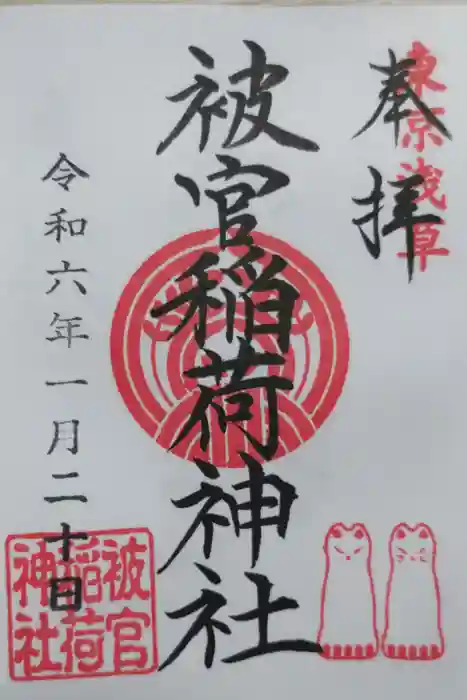 奉拝
東京浅草
被官稲荷神社
令和六年一月二十日
被官
稲荷
神社